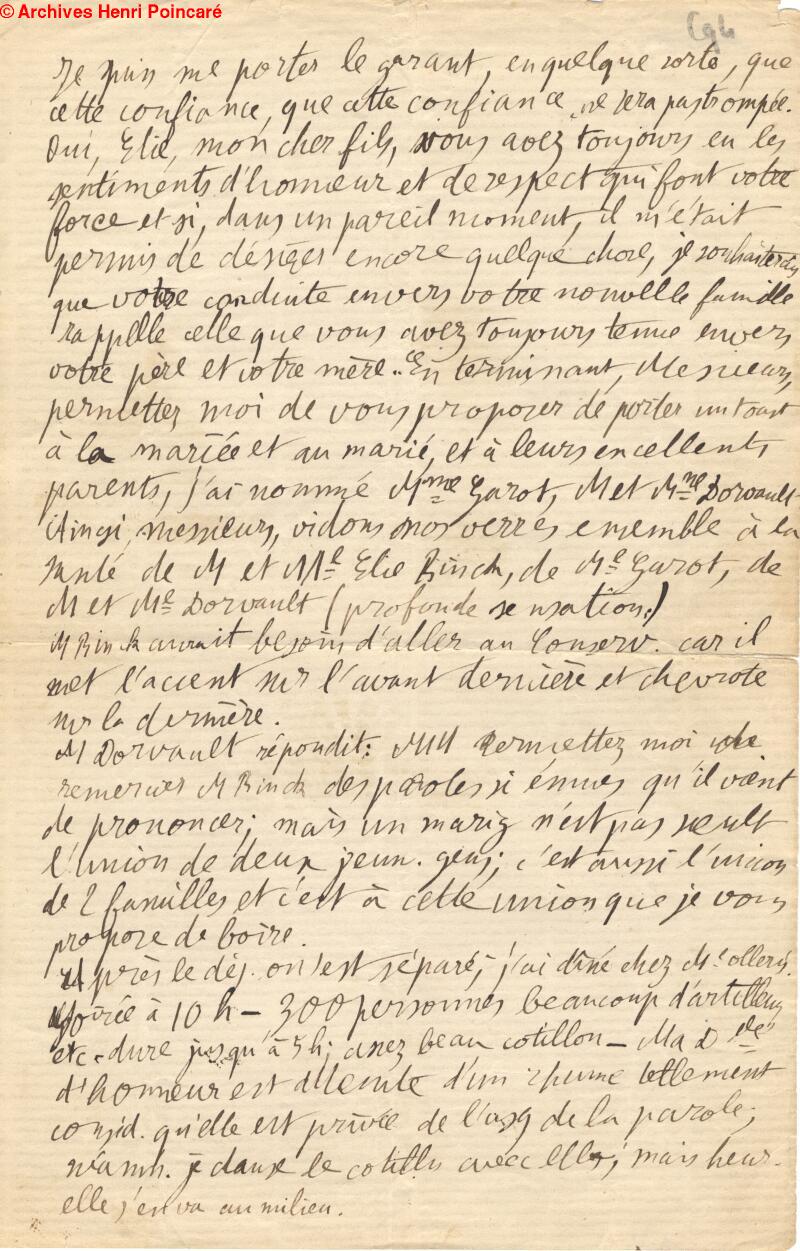 © Archives Henri Poincaré
Je puis me porter le garant, en quelque sorte, que
cette confiance, que cette confiance ne sera pas trompée.
Oui, Elie, mon cher fils, vous avez toujours eu les
sentiments d'honneur et de respect qui font votre
force et si, dans un pareil moment, il m'était
permis de désirer encore quelque chose, je souhaiterais
que votre conduite envers votre nouvelle famille
rappelle celle que vous avez toujours tenue envers
votre père et votre mère. En terminant, Messieurs,
permettez moi de vous proposer de porter un toast
à la mariée et au marié, et à leurs excellents
parents, j'ai nommé Mme Garot, M et Mme Dorvault
Ainsi, messieurs, vidons nos verres ensemble à la
santé de M et Me Elie Rinck, de Me Garot, de
M et Me Dorvault (profonde sensation.)
M Rinck aurait besoin d'aller au Conserv. car il
met l'accent sur l'avant dernière et chevrote
sur la dernière.
M Dorvault répondit: MM Permettez moi de
remercier M Rinck des paroles si émues qu'il vient
de prononcer; mais un marig n'est pas seult
l'union de deux jeun. gens; c'est aussi l'union
de 2 familles et c'est à cette union que je vous
propose de boire.
Après le déj. on s'est séparé; j'ai dîné chez Me Olleris.
Soirée à 10 h – 300 personnes beaucoup d'artilleurs
etc – dure jusqu'à 5h; assez beau cotillon – Ma Dlle
d'honneur est atteinte d'un rhume tellement
consid. qu'elle est privée de l'usg de la parole;
néanm. je danse le cotillon avec elle; mais heur.
elle s'en va au milieu.